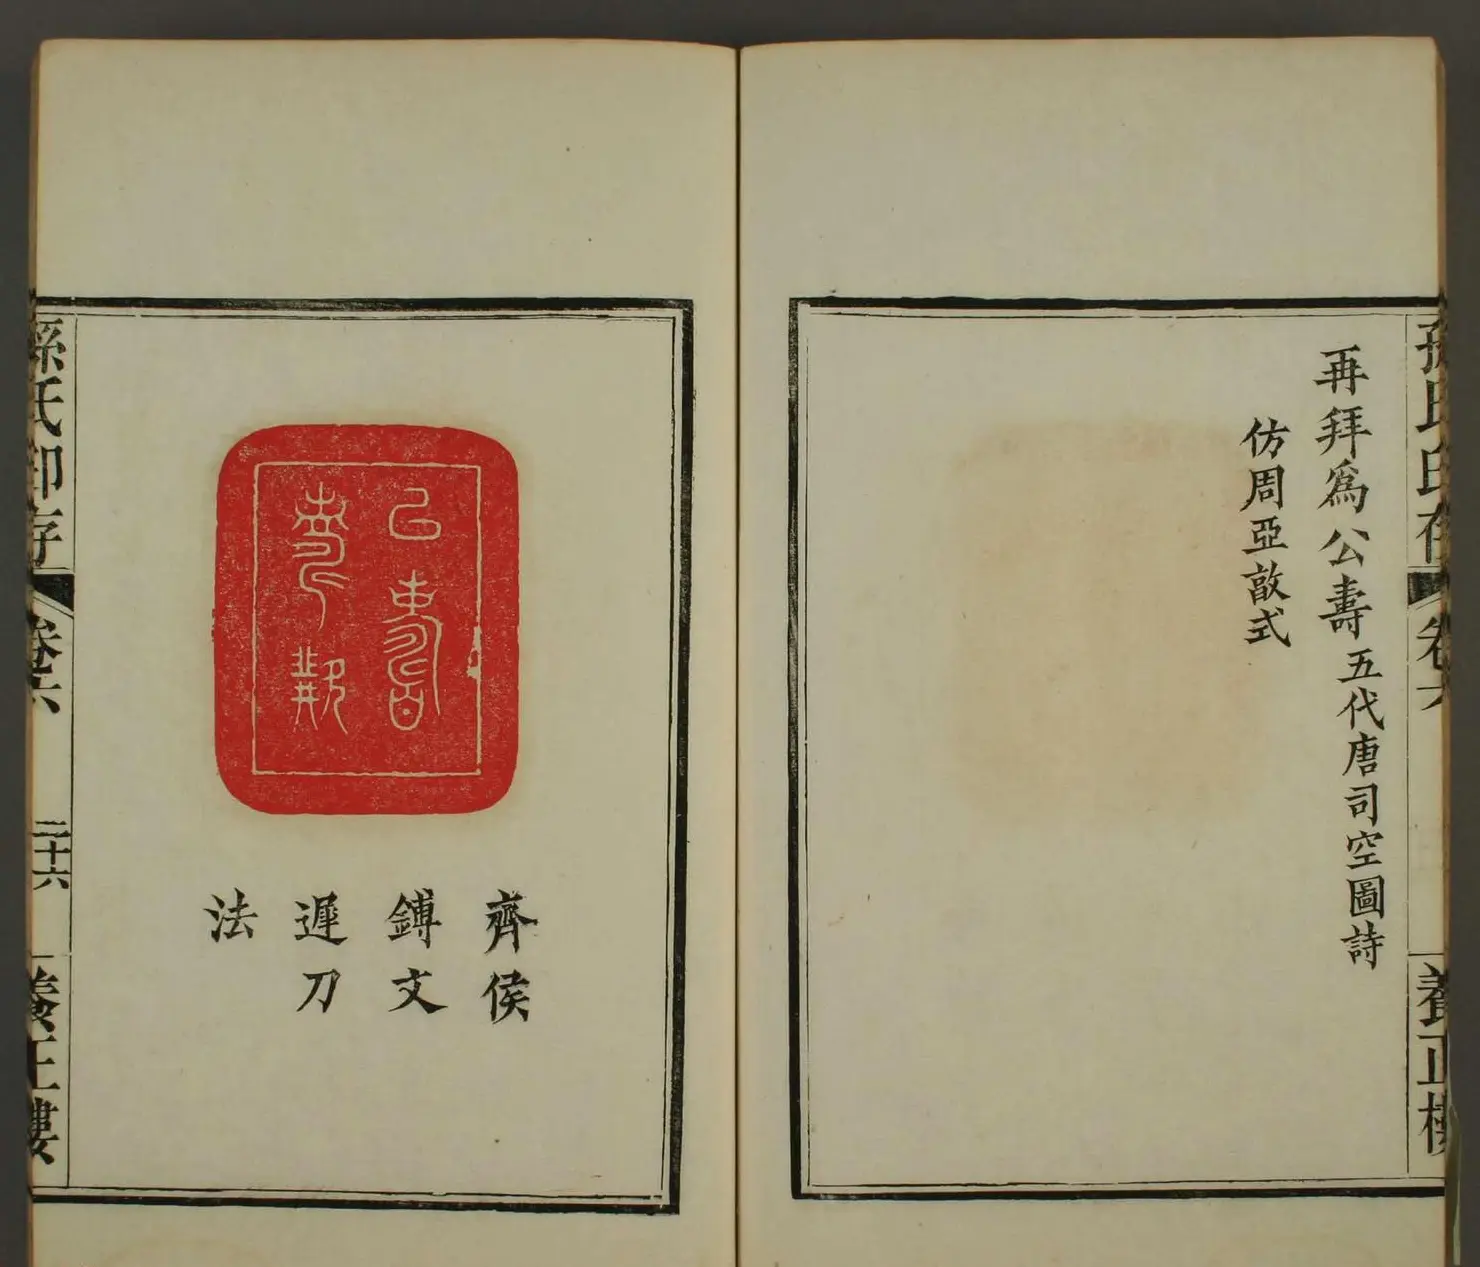 孫氏印存
卷六
養正樓
再拜爲公壽五代唐司空圖詩
仿周亞敔式
齊侯
鎛文
遲刀
法
孫氏印存
卷六
二十六
養正樓